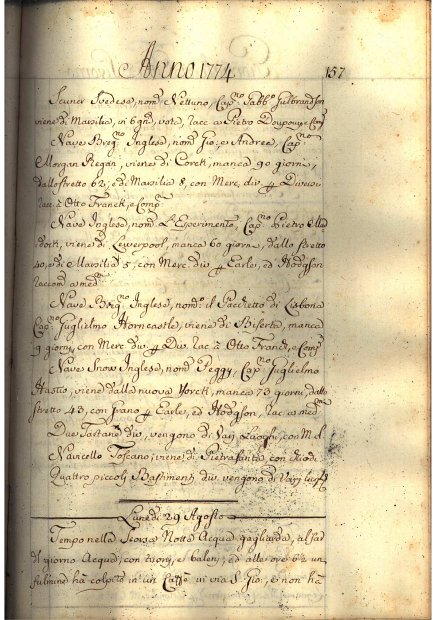 Anno 1774
157
Scuner Svedese, nom.º Nettuno, Cap.no Gabb.º Gulbrandson
viene di Marsilia, in 6 gni, vota, racc. a Pietro Doupouy e Comp
Nave Brig.no Inglese, nom.º Gio: e Andrea, Cap.no
Morgan Regan, viene di Corck, manca 90 giorni,
dallo stretto 62, e di Marsilia 8, con Merc. div. p Diversi
rac. a Otto Franck, e Comp.
Nave Inglese, nom.º L'Esperimento, Cap.no Pietro
dock, viene di Lewerpool, manca 60 giorni, dallo stretto
40, e di Marsilia 5, con Merc. div. p Earle, ed Hodgson
raccom. a med.mi
Nave Brig.no Inglese, nom.º il Pacchetto di Lisbona
Cap.no Guglielmo Horncastle, viene di Biserta, manca
9 giorni, con Merc. div. p Div. rac. a Otto Franck, e Comp
Nave Snow Inglese, nom.º Peggy, Cap.no Guglielmo
Hastie, viene dalla nuova Yorck, manca 78 giorni, dallo
stretto 43, con grano p Earle, ed Hodgson, rac. a med.mi
Due Tartane div. vengono di Varj Luoghi, con M. d.
Navicello Toscano, viene di Pietrasanta, con
Quattro piccoli Bastimenti div. vengono di Varj Luoghi
Lunedi 29 Agosto
Tempo nella Scorza Notta Acqua gagliarda, al far
del giorno Acqua, con tuoni, e baleni, ed alle ore 6½ un
fulmine hà colpito in un Caffè in via S. Gio:, e non hà